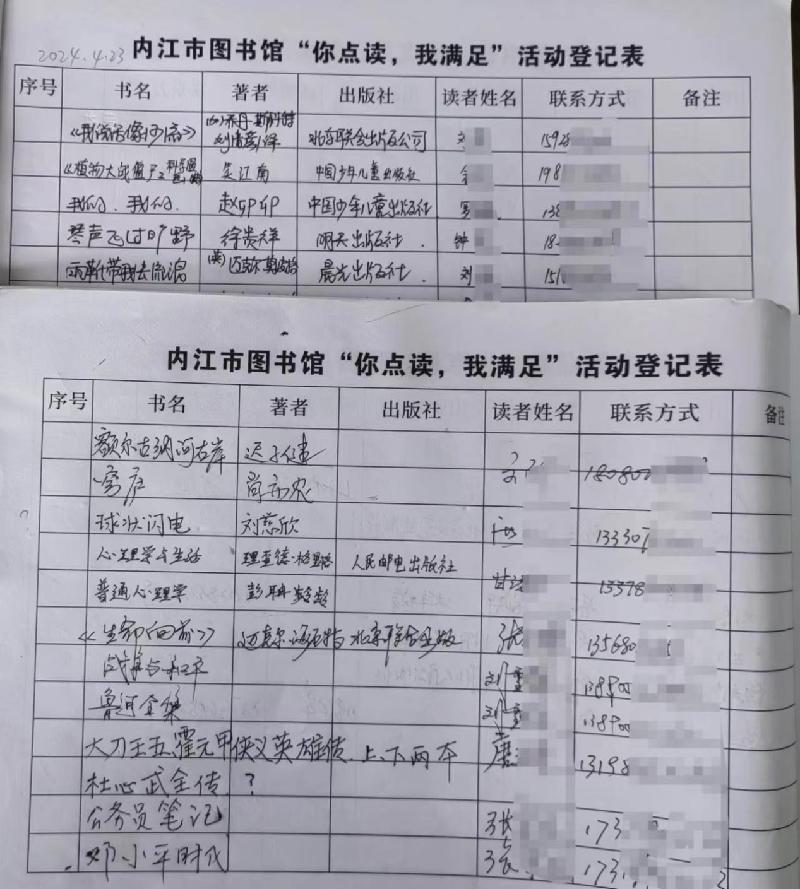 2024.4.23
内江市图书馆“你点读，我满足”活动登记表
序号 书名 著者 出版社 读者姓名 联系方式 备注
《我说话像河流》 乔丹·斯科特 刘清彦/译 北京联合出版公司 刘 159
《植物大战僵尸2 吴江南 中国少年儿童出版社 198
我们、我们 赵卯卯 中国少年儿童出版社 罗 138
琴声飞过旷野 徐贵祥 明天出版社. 钟 18
(英) 迈克尔·莫波格 晨光出版社. 刘 151
内江市图书馆“你点读，我满足”活动登记表
序号 书名 著者 出版社 读者姓名 联系方式 备注
额尔古纳河右岸 迟子建 180800
球状闪电 刘慈欣 13330
心理学与生活 理查德·格里格 人民邮电出版社
普通心理学 彭聃龄 甘 13378
《生命向前》 北京联合出版 张 135680
战争与和平 刘 138900
鲁迅全集 刘 138900
大刀王五霍元甲侠义英雄传 上、下两本 唐 13198
杜心武全传 ?
公务员笔记 张 173
邓小平时代 张 173 2